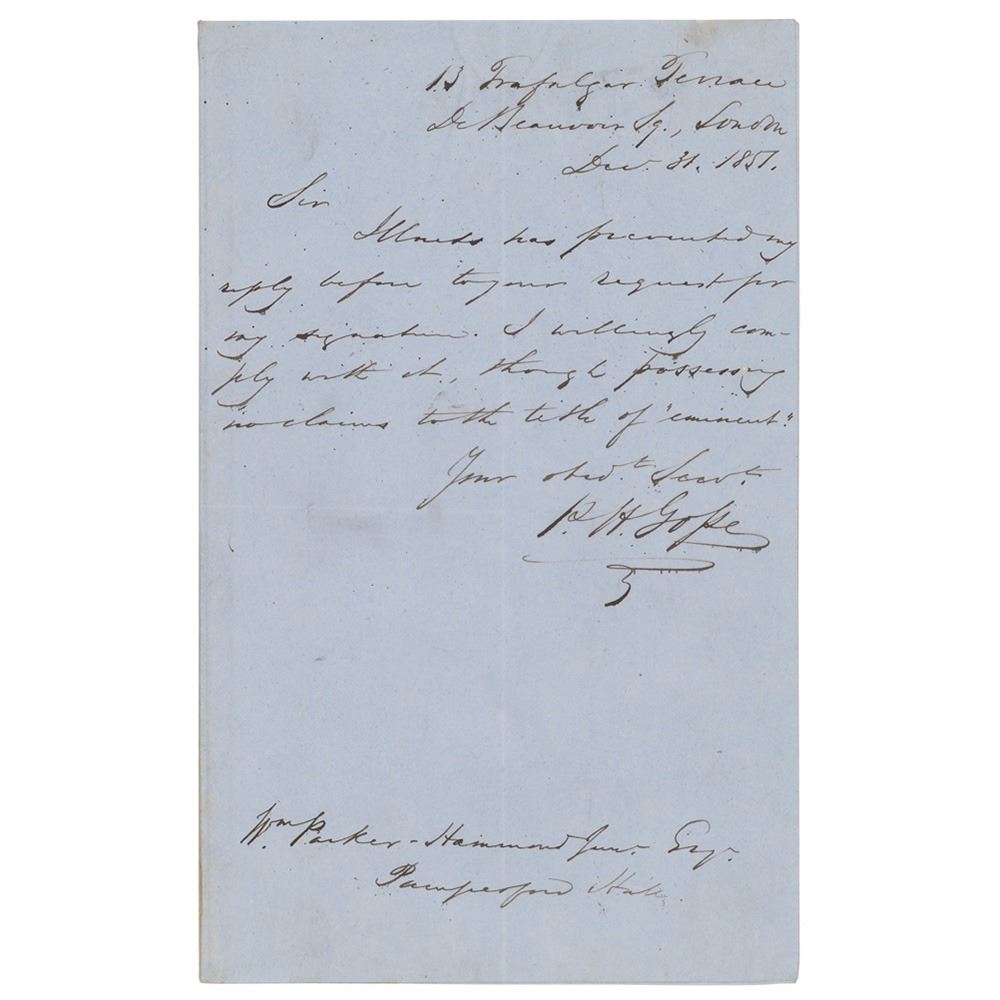 13 Trafalgar Terrace
De Beauvoir Sq., London
Dec. 31. 1851.
Sir
Illness has prevented my
reply before to your request for
my signature. I willingly com-
ply with it, though possessing
no claims to the title of "eminent".
Your obedt. Servt.
P. H. Gosse
Wm. Parker-Hammond Junr. Esqr.
Pampesford Hall